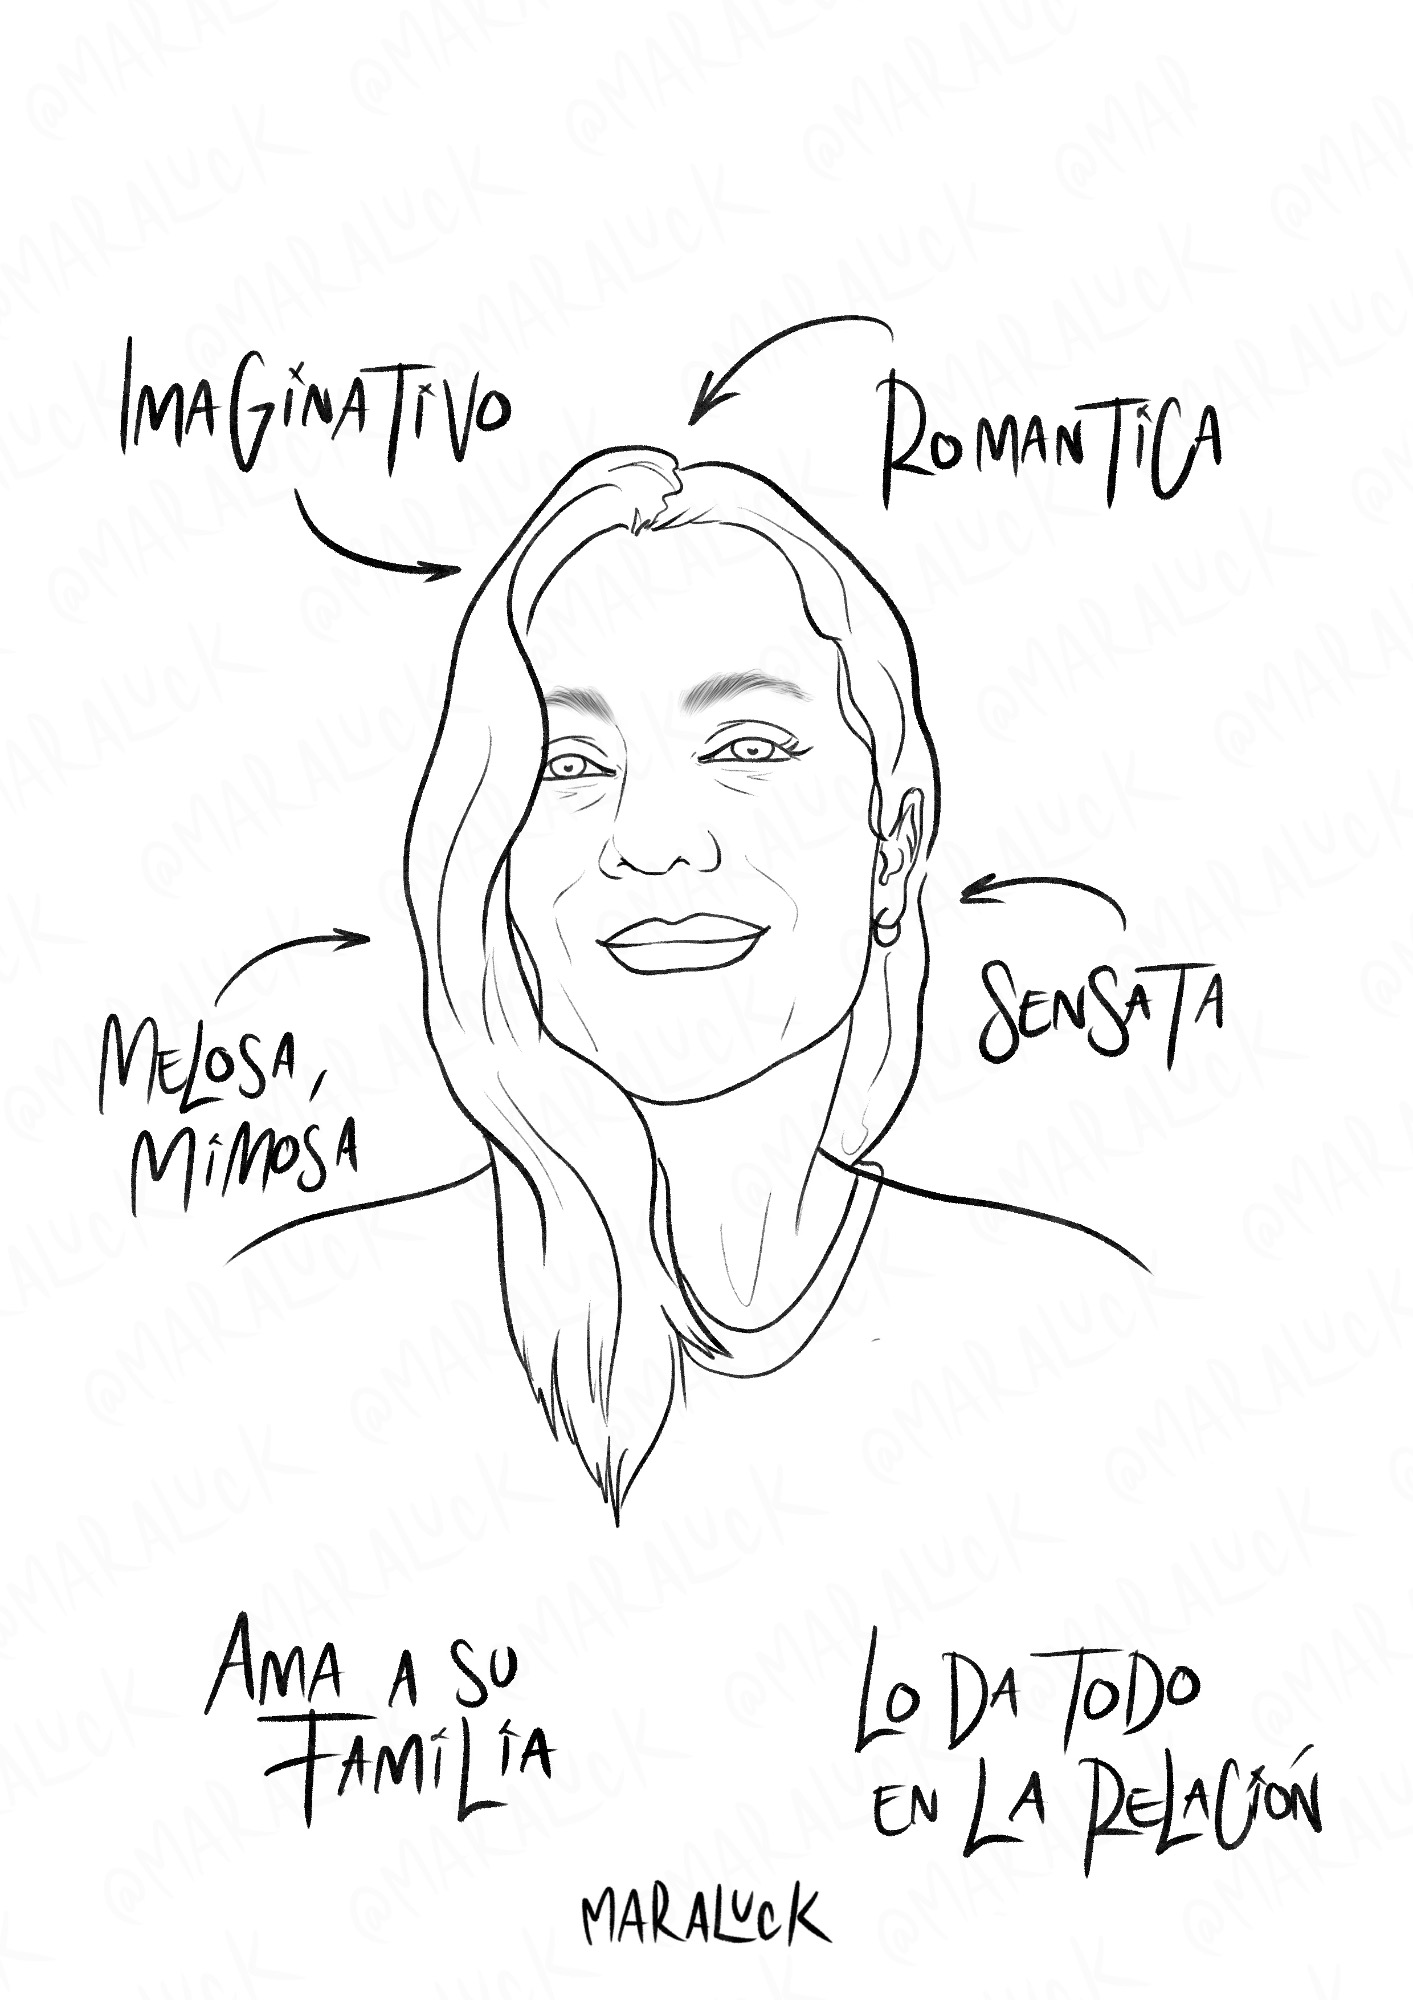 IMAGINATIVO
ROMANTICA
MELOSA,
MIMOSA
SENSATA
AMA A SU
FAMILIA
LO DA TODO
EN LA RELACIÓN
MARALUCK
@MARALUCK